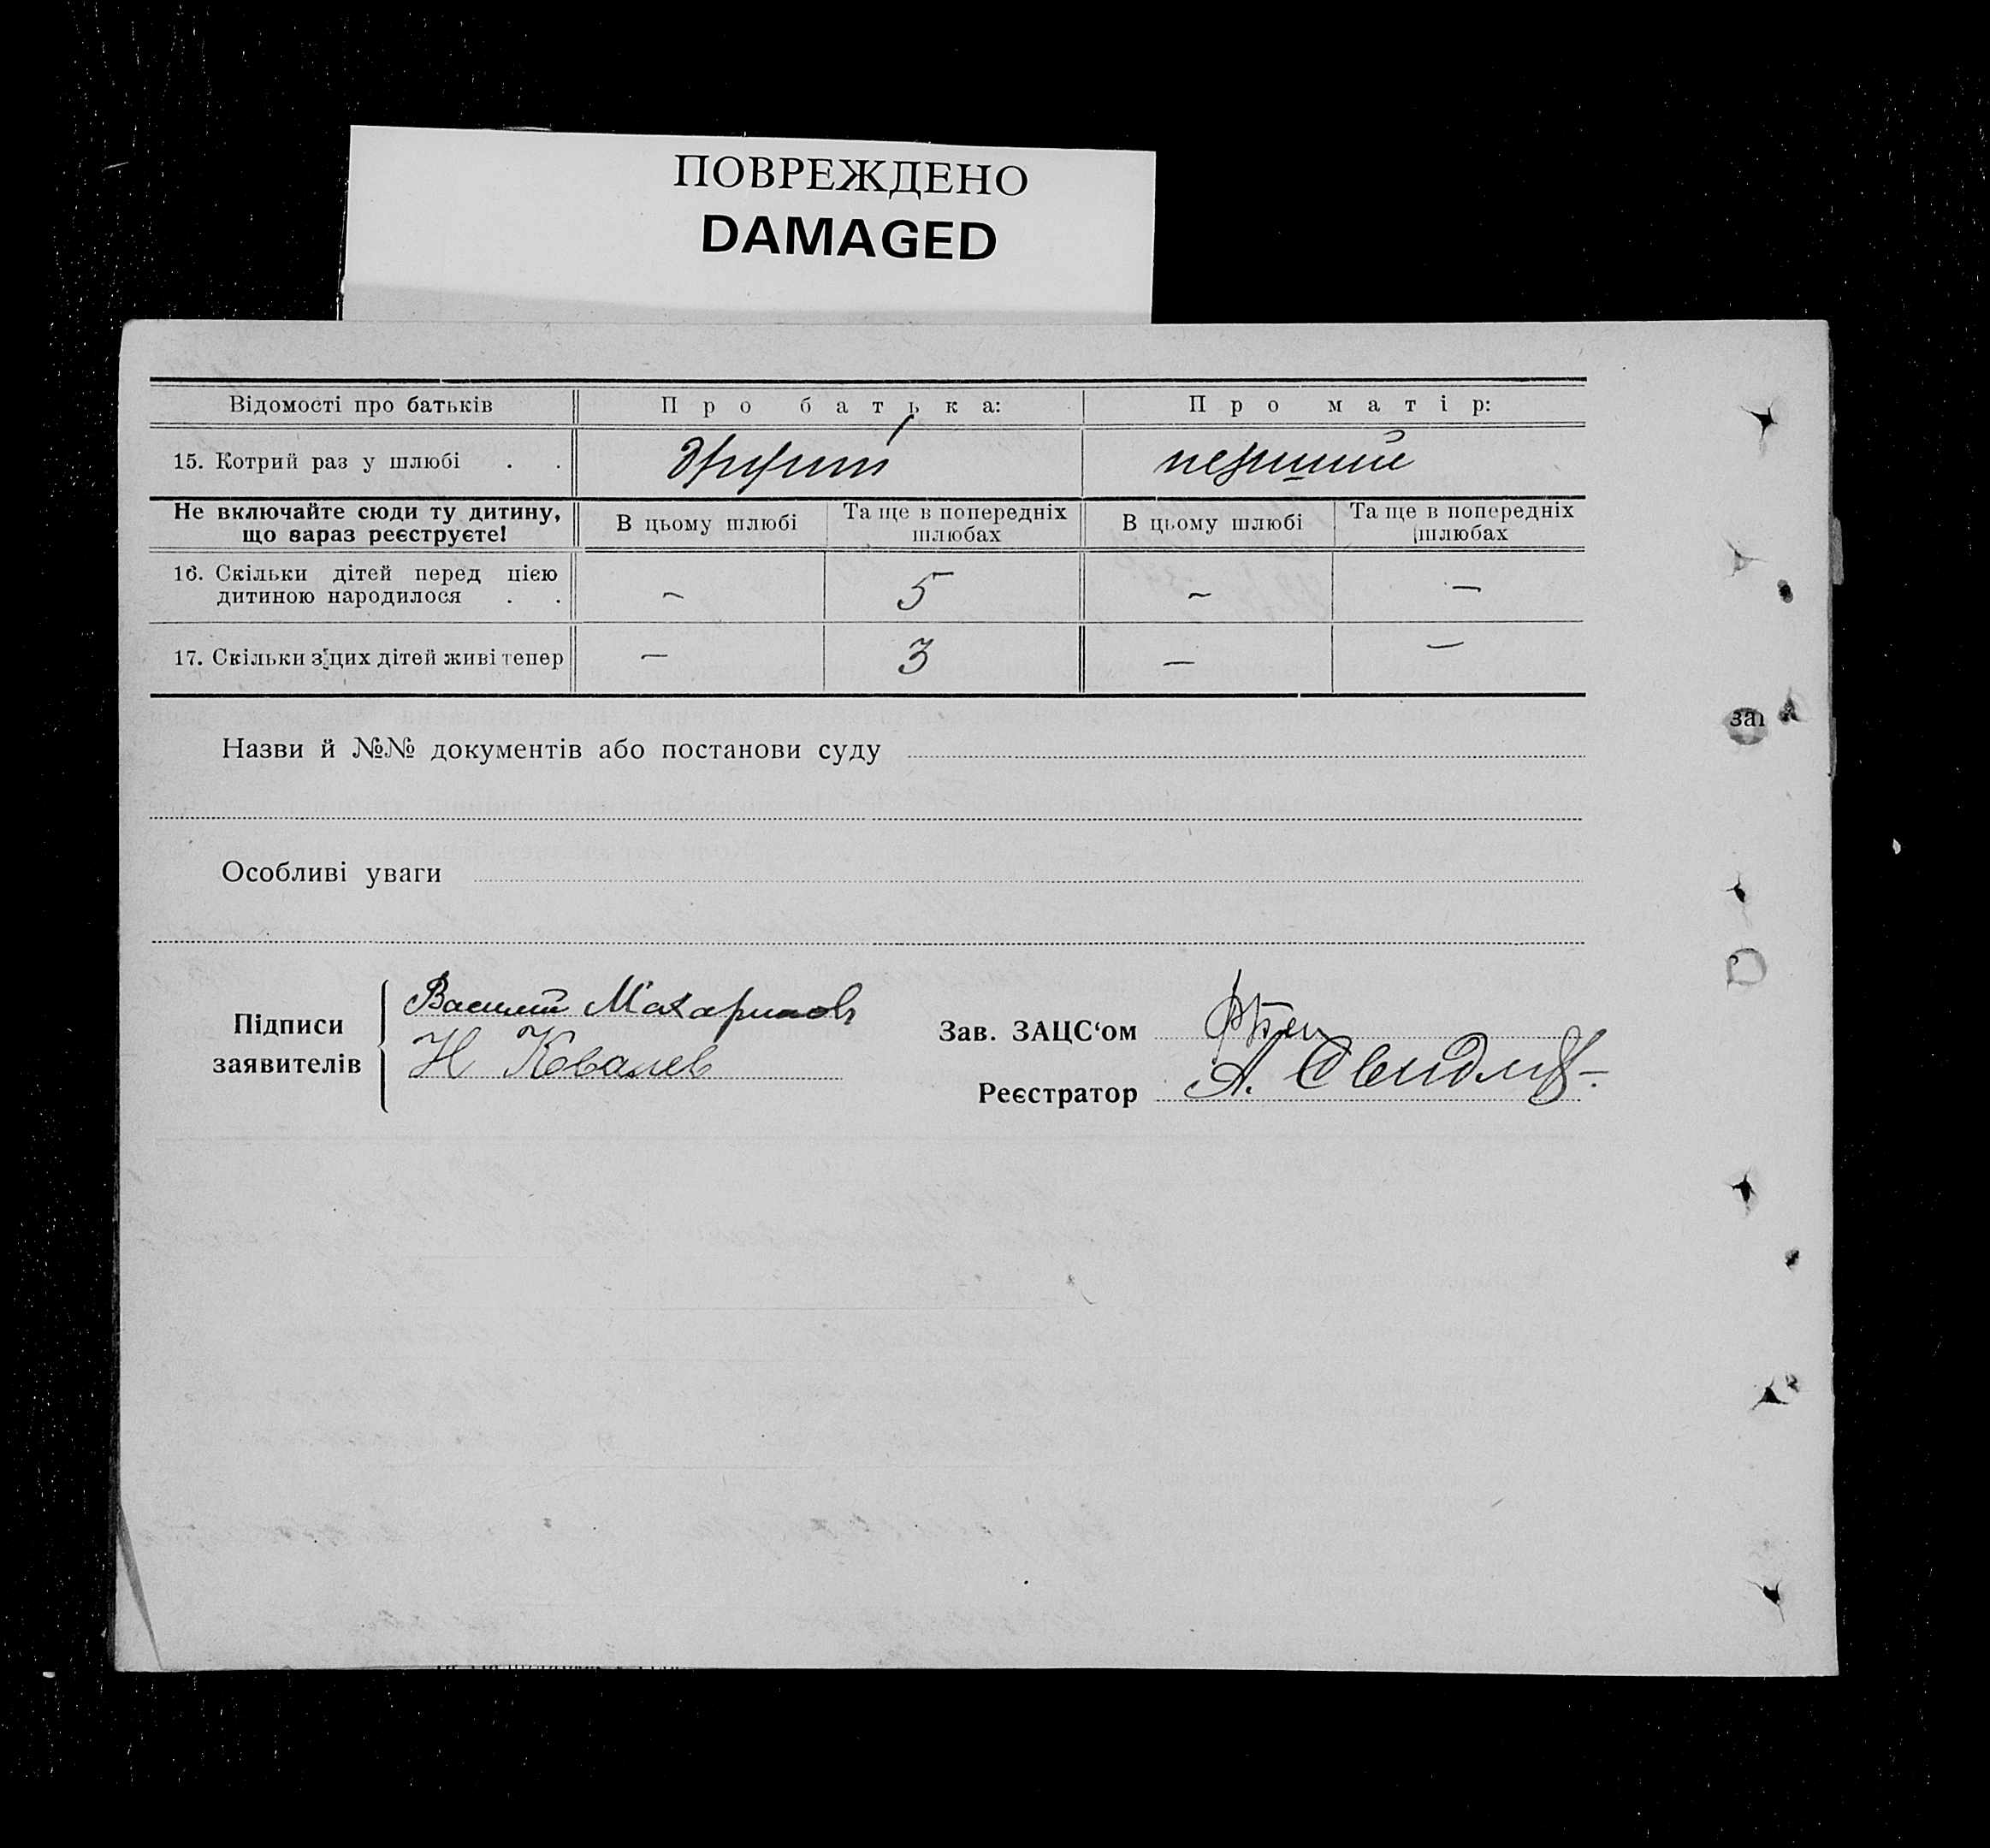 ПОВРЕЖДЕНО
DAMAGED
Відомості про батьків Про батька: Про матір:
15. Котрий раз у шлюбі . . другий перший
Не включайте сюди ту дитину, що зараз реєструєте! В цьому шлюбі Та ще в попередніх шлюбах В цьому шлюбі Та ще в попередніх шлюбах
16. Скільки дітей перед цією
дитиною народилося . . – 5 – –
17. Скільки з цих дітей живі тепер – 3 – –
Назви й №№ документів або постанови суду
Особливі уваги
Підписи заявителів
Василий Макаринов
Н Ковалев
Зав. ЗАЦС‘ом
Реєстратор А.
заг